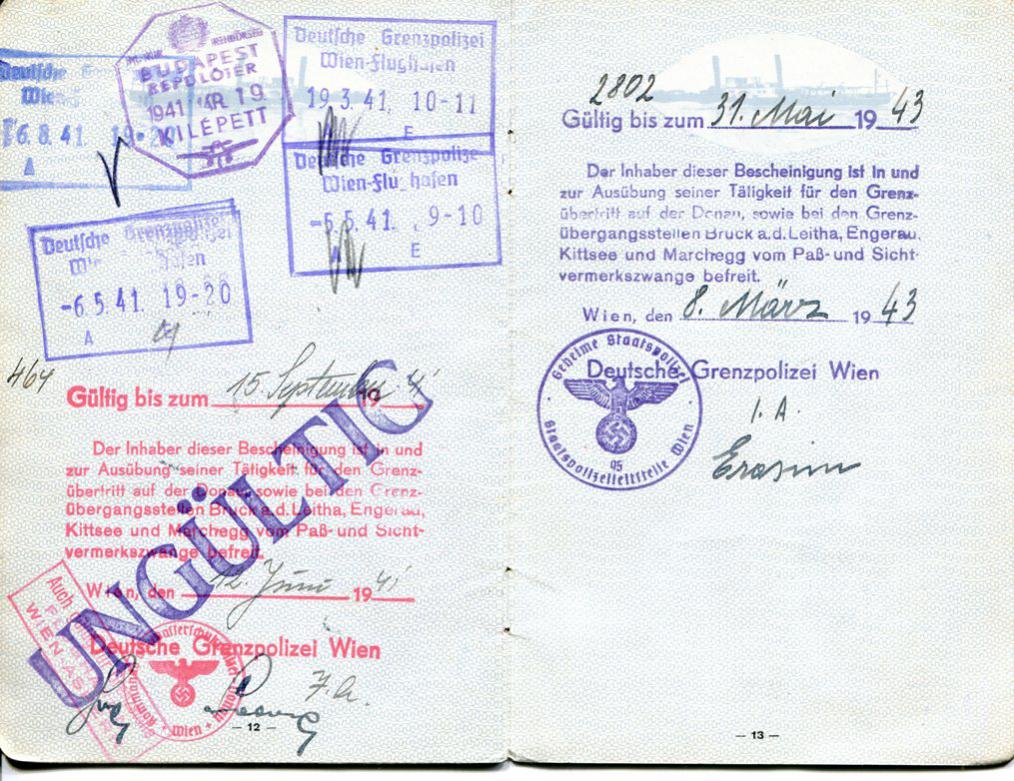 Deutsche
Wien
6.8.41. 19-20
A
BUDAPEST
REPÜLŐTÉR
1941 MÁR 19
KILÉPETT
Deutsche Grenzpolizei
Wien-Flughafen
19.3.41. 10-11
E
Deutsche Grenzpolizei
Wien-Flughafen
-5.5.41. 9-10
E
Deutsche Grenzpolizei
-6.5.41. 19-20
A
464
Gültig bis zum 15. September 1941
Der Inhaber dieser Bescheinigung ist in und
zur Ausübung seiner Tätigkeit für den Grenz-
übertritt auf der Donau, sowie bei den Grenz-
übergangsstellen Bruck a.d. Leitha, Engerau,
Kittsee und Marchegg vom Paß- und Sicht-
vermerkszwange befreit.
Wien, den 12. Juni 1941
Deutsche Grenzpolizei Wien
UNGÜLTIG
Wien
— 12 —
2802
Gültig bis zum 31. Mai 1943
Der Inhaber dieser Bescheinigung ist in und
zur Ausübung seiner Tätigkeit für den Grenz-
übertritt auf der Donau, sowie bei den Grenz-
übergangsstellen Bruck a.d. Leitha, Engerau,
Kittsee und Marchegg vom Paß- und Sicht-
vermerkszwange befreit.
Wien, den 8. März 1943
Geheime Staatspolizei
Staatspolizeileitstelle Wien
95
Deutsche Grenzpolizei Wien
I. A.
— 13 —